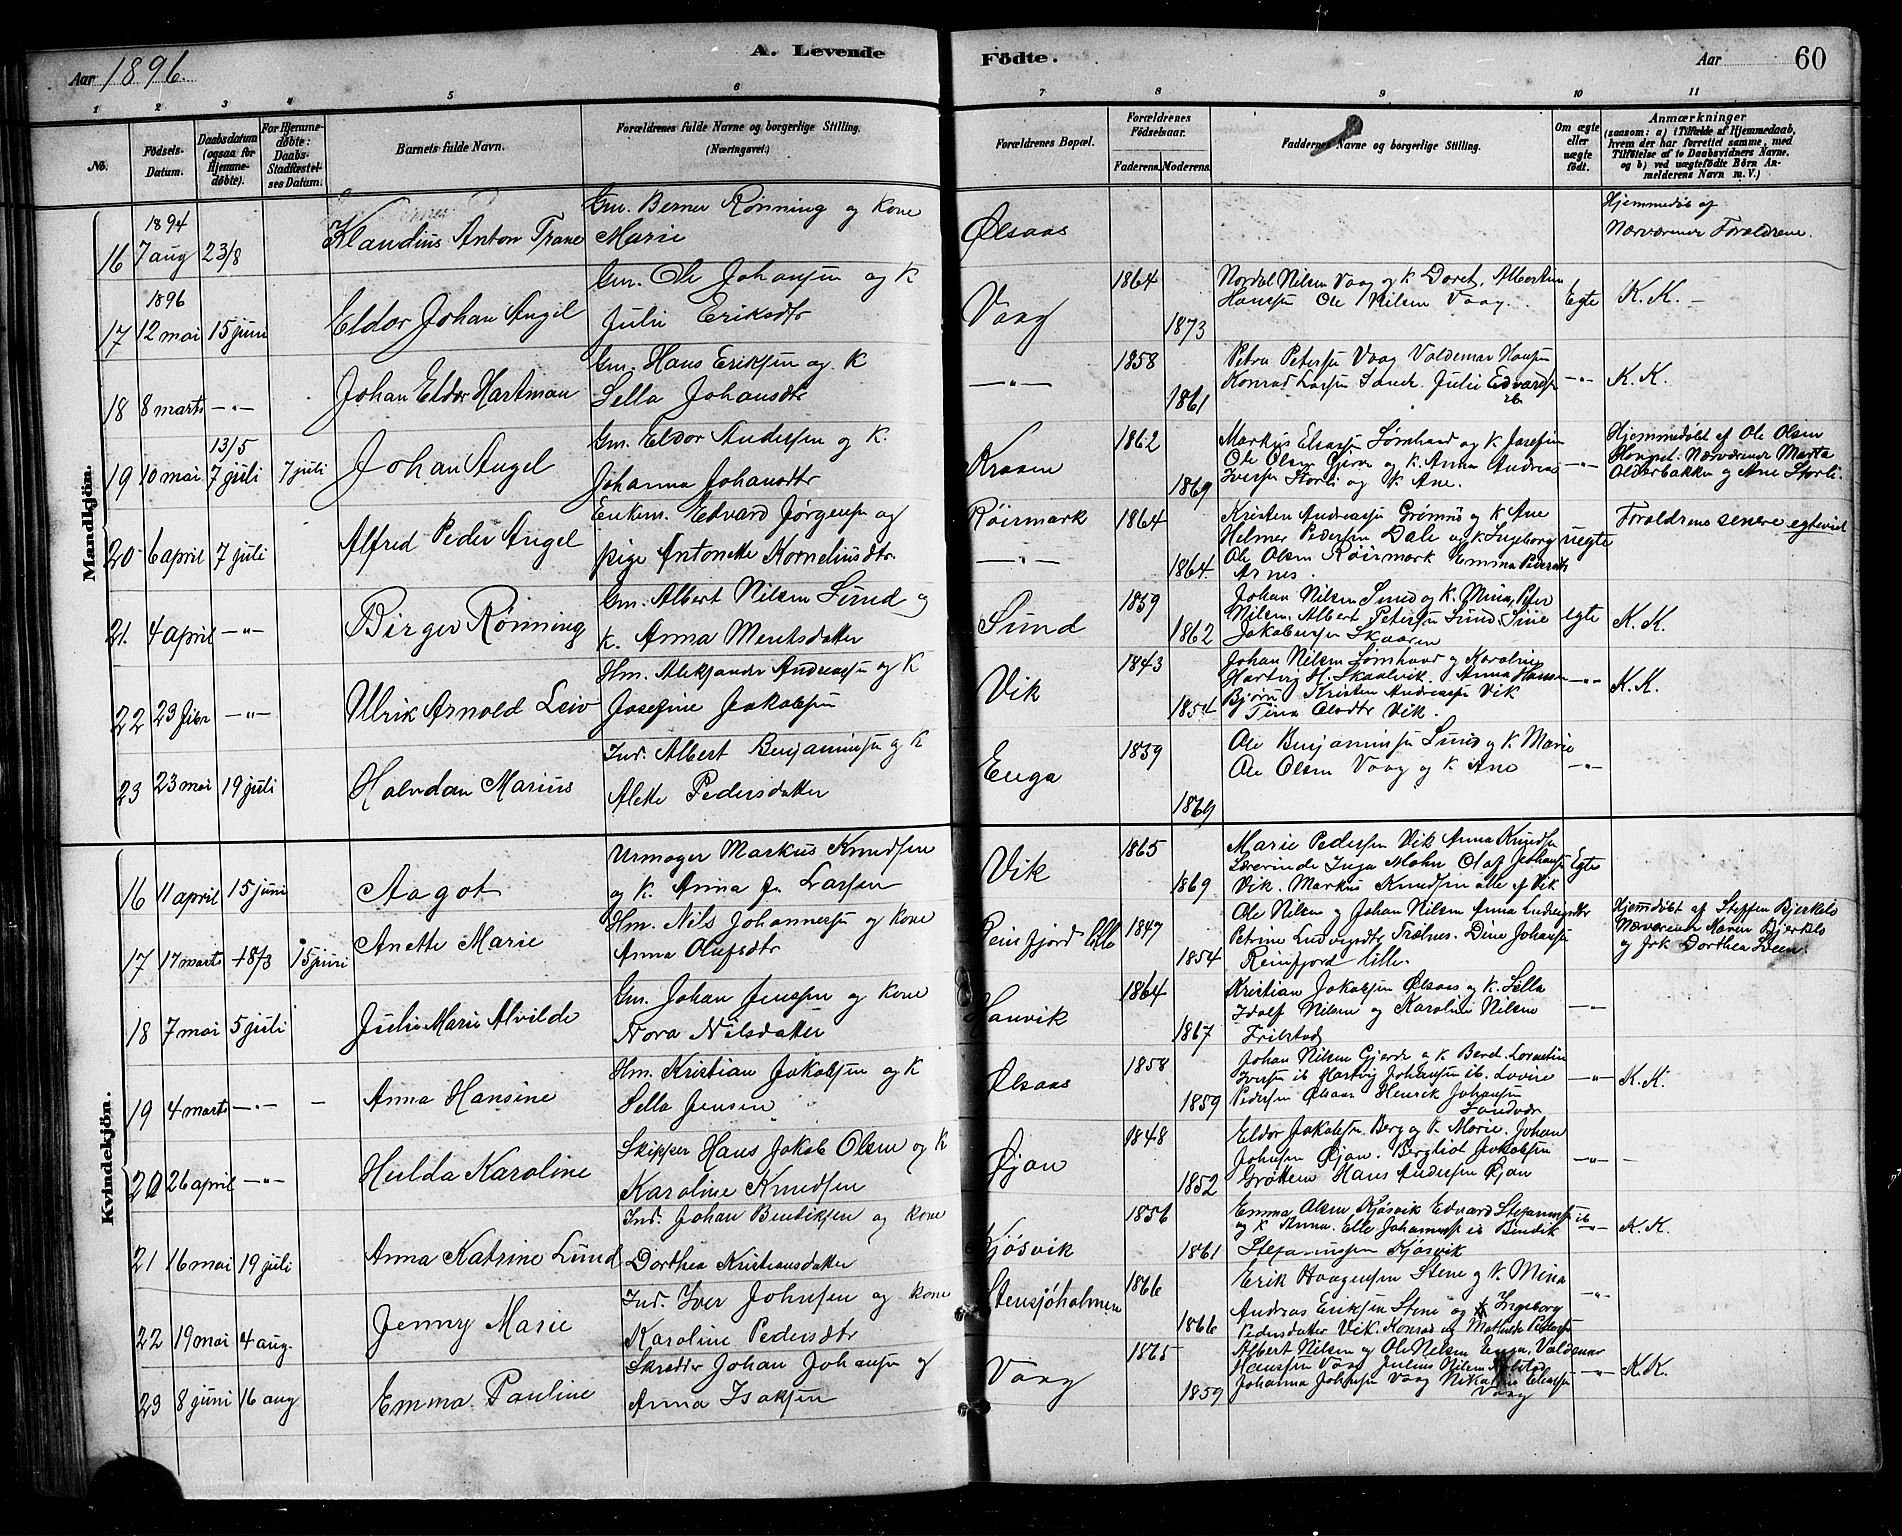 Aar 1896.
A. Levende
Födte.
Aar
60
1 2 3 4 5 6 7 8 9 10 11
No.
Födsels-Datum.
Daabsdatum (ogsaa for Hjemme-døbte).
For Hjemme-døbte: Daabs-Stadfæstel-ses Datum.
Barnets fulde Navn.
Forældrenes fulde Navne og borgerlige Stilling. (Næringsvei.)
Forældrenes Bopæl.
Forældrenes Födselsaar.
Faderens. Moderens.
Faddernes Navne og borgerlige Stilling.
Om ægte eller uægte født.
Anmærkninger
(saasom: a) i Tilfælde af Hjemmedaab, hvem der har forrettet samme, med Tilföielse af to Daabsvidners Navne, og b) ved uægtefödte Börn Anmelderens Navn m. V.)
Mandkjön.
16 1894 7 aug 23/8 Klaudius Anton Trane
Gm. Berner Rönning og Kone
Marie
Ølsaas
Hjemmedöb af
Nærværende Forældrene.
17 1896 12 mai 15 juni Eldor Johan Angel
Gm. Ole Johansen og K
Julie Eriksdtr
Vaag 1864 1873
Nordal Nilsen Vaag og K. Doret. Albertine
Hansen Ole Nilsen Vaag.
Egte K. K. —
18 8 marts —"— Johan Eldor Hartman
Gm. Hans Eriksen og K
Sella Johansdtr
—"— 1858 1861
Petra Petersen Vaag Valdemar Hansen
Konrad Larsen Sand. Julie Edvardsen
ib
—"— K. K.
19 10 mai 13/5 7 juli 7 juli Johan Angel
Gm. Eldor Andersen og K.
Johanna Johansdtr
Kraaen 1862 1869
Markus Eliassen Lömhaad og K. Josefine
Ole Olsen Gjerde og K. Anna Andreas
Iversen Storli og K. Ane.
—"—
Hjemmedöbt af Ole Olsen
Nærværende Marta
Olderbakken og Ane Storli.
20 6 april 7 juli Alfred Peder Angel
Enkem. Edvard Jørgensen og
pige Antonette Korneliusdtr.
Röirmark 1864
—"— 1864.
Kristen Andreassen Grömnes og K. Ane
Helmer Pedersen Dale og K. Ingeborg
Ole Olsen Röirmark Emma Pedersdtr
Arnes.
uegte
Foraldrene senere egteviet
21. 4 april —"— Birger Rönning
Gm. Albert Nilsen Sund og
K. Anna Mentsdatter
Sund 1859 1862
Johan Nilsen Sund og K. Mina, Peter
Nilsen, Albert Petersen Sund Sine
Jakobsen Skaaren
egte K. K.
22 23 febr —"— Ulrik Arnold Leiv
Hm. Aleksander Andreassen og K
Josefine Jakobsen
Vik 1843 1854
Johan Nilsen Lömhaad og Karoline
Hartvig H. Skaalvik. Anna Hansen
Bjørn Kristen Andreassen Vik
Tina Olsdtr Vik.
—"— K. K.
23 23 mai 19 juli Halvdan Marius
Ind. Albert Benjaminsen og K
Alette Pedersdatter
Enga 1859 1869
Ole Benjaminsen Sund og K. Marie
Ole Olsen Vaag og K. Ane
—"—
Kvindekjön.
16 11 april 15 juni Aagot
Urmager Markus Knudsen
og K. Anna J. Larsen
Vik 1865 1869
Marie Pedersen Vik Anna Knudsen
Lærerinde Inga Mohn Olaf Johansen
Vik. Markus Knudsen alle af Vik
Egte
17 17 marts 18/3 15 juni Anette Marie
Hm. Nils Johannessen og Kone
Anna Olufsdtr
Reinfjord lille 1847 1854
Ole Nilsen og Johan Nilsen Anna Ludvigsdtr
Petrine Ludvigsdtr Trælnes. Dina Johansen
Reinfjord lille.
Hjemdöbt af Steffen Bjerkelo
Nærværende Maren Bjerkelo
og frk Dorthea Sveen.
18 7 mai 5 juli Julie Marie Alvilde
Gm. Johan Jenssen og Kone
Nora Nilsdatter
Hanvik 1864 1867
Kristian Jakobsen Ølsaas og K. Sella
Idolf Nilsen og Karoline Nilsen
Frilstad
—"—
19 4 marts —"— – Anna Hansine
Hm. Kristian Jakobsen og K
Sella Jensen
Ølsaas 1858 1859
Johan Nilsen Gjerde og K Beret. Lornetine
Iversen ib Hartvig Johansen ib. Lovise
Pedersen Ølsaas Henrik Johansen
Sandvær
—"— K. K.
20 26 april —"— Hulda Karoline
Skipper Hans Jakob Olsen og K
Karoline Knudsen
Øjan 1848 1852
Eldor Jakobsen Berg og K. Marie. Johan
Johnsen Øjan. Bergliot Jakobsen
Gröttem Hans Andersen Øjan
—"— –
21 16 mai 19 juli Anna Katrine Lund
Ind. Johan Bendiksen og Kone
Dorthea Kristiansdatter
Kjøsvik 1856 1861
Emma Olsen Kjøsvik Edvard Stefanussen ib
og K Anna. Elle Johannessen ib Bendik
Stefanussen Kjøsvik
—"— K. K.
22 19 mai 4 aug. Jenny Marie
Ind. Iver Johnsen og Kone
Karoline Pedersdtr
Stensjøholmen 1866 1866
Erik Haagensen Stene og K. Mina
Andreas Eriksen Stene og K Ingeborg
Pedersdatter Vik. Konrad og Mathilde Petersen
—"—
23 8 juni 16 aug Emma Pauline
Skrædder Johan Johansen og
Anna Isaksen
Vaag 1865 1859
Albert Nilsen og Ole Nilsen Enga. Valdemar
Hanssen Vaag Julius Nilsen
Johanna Johnsen Vaag Nikoline Eliassen
Vaag
—"— K K.